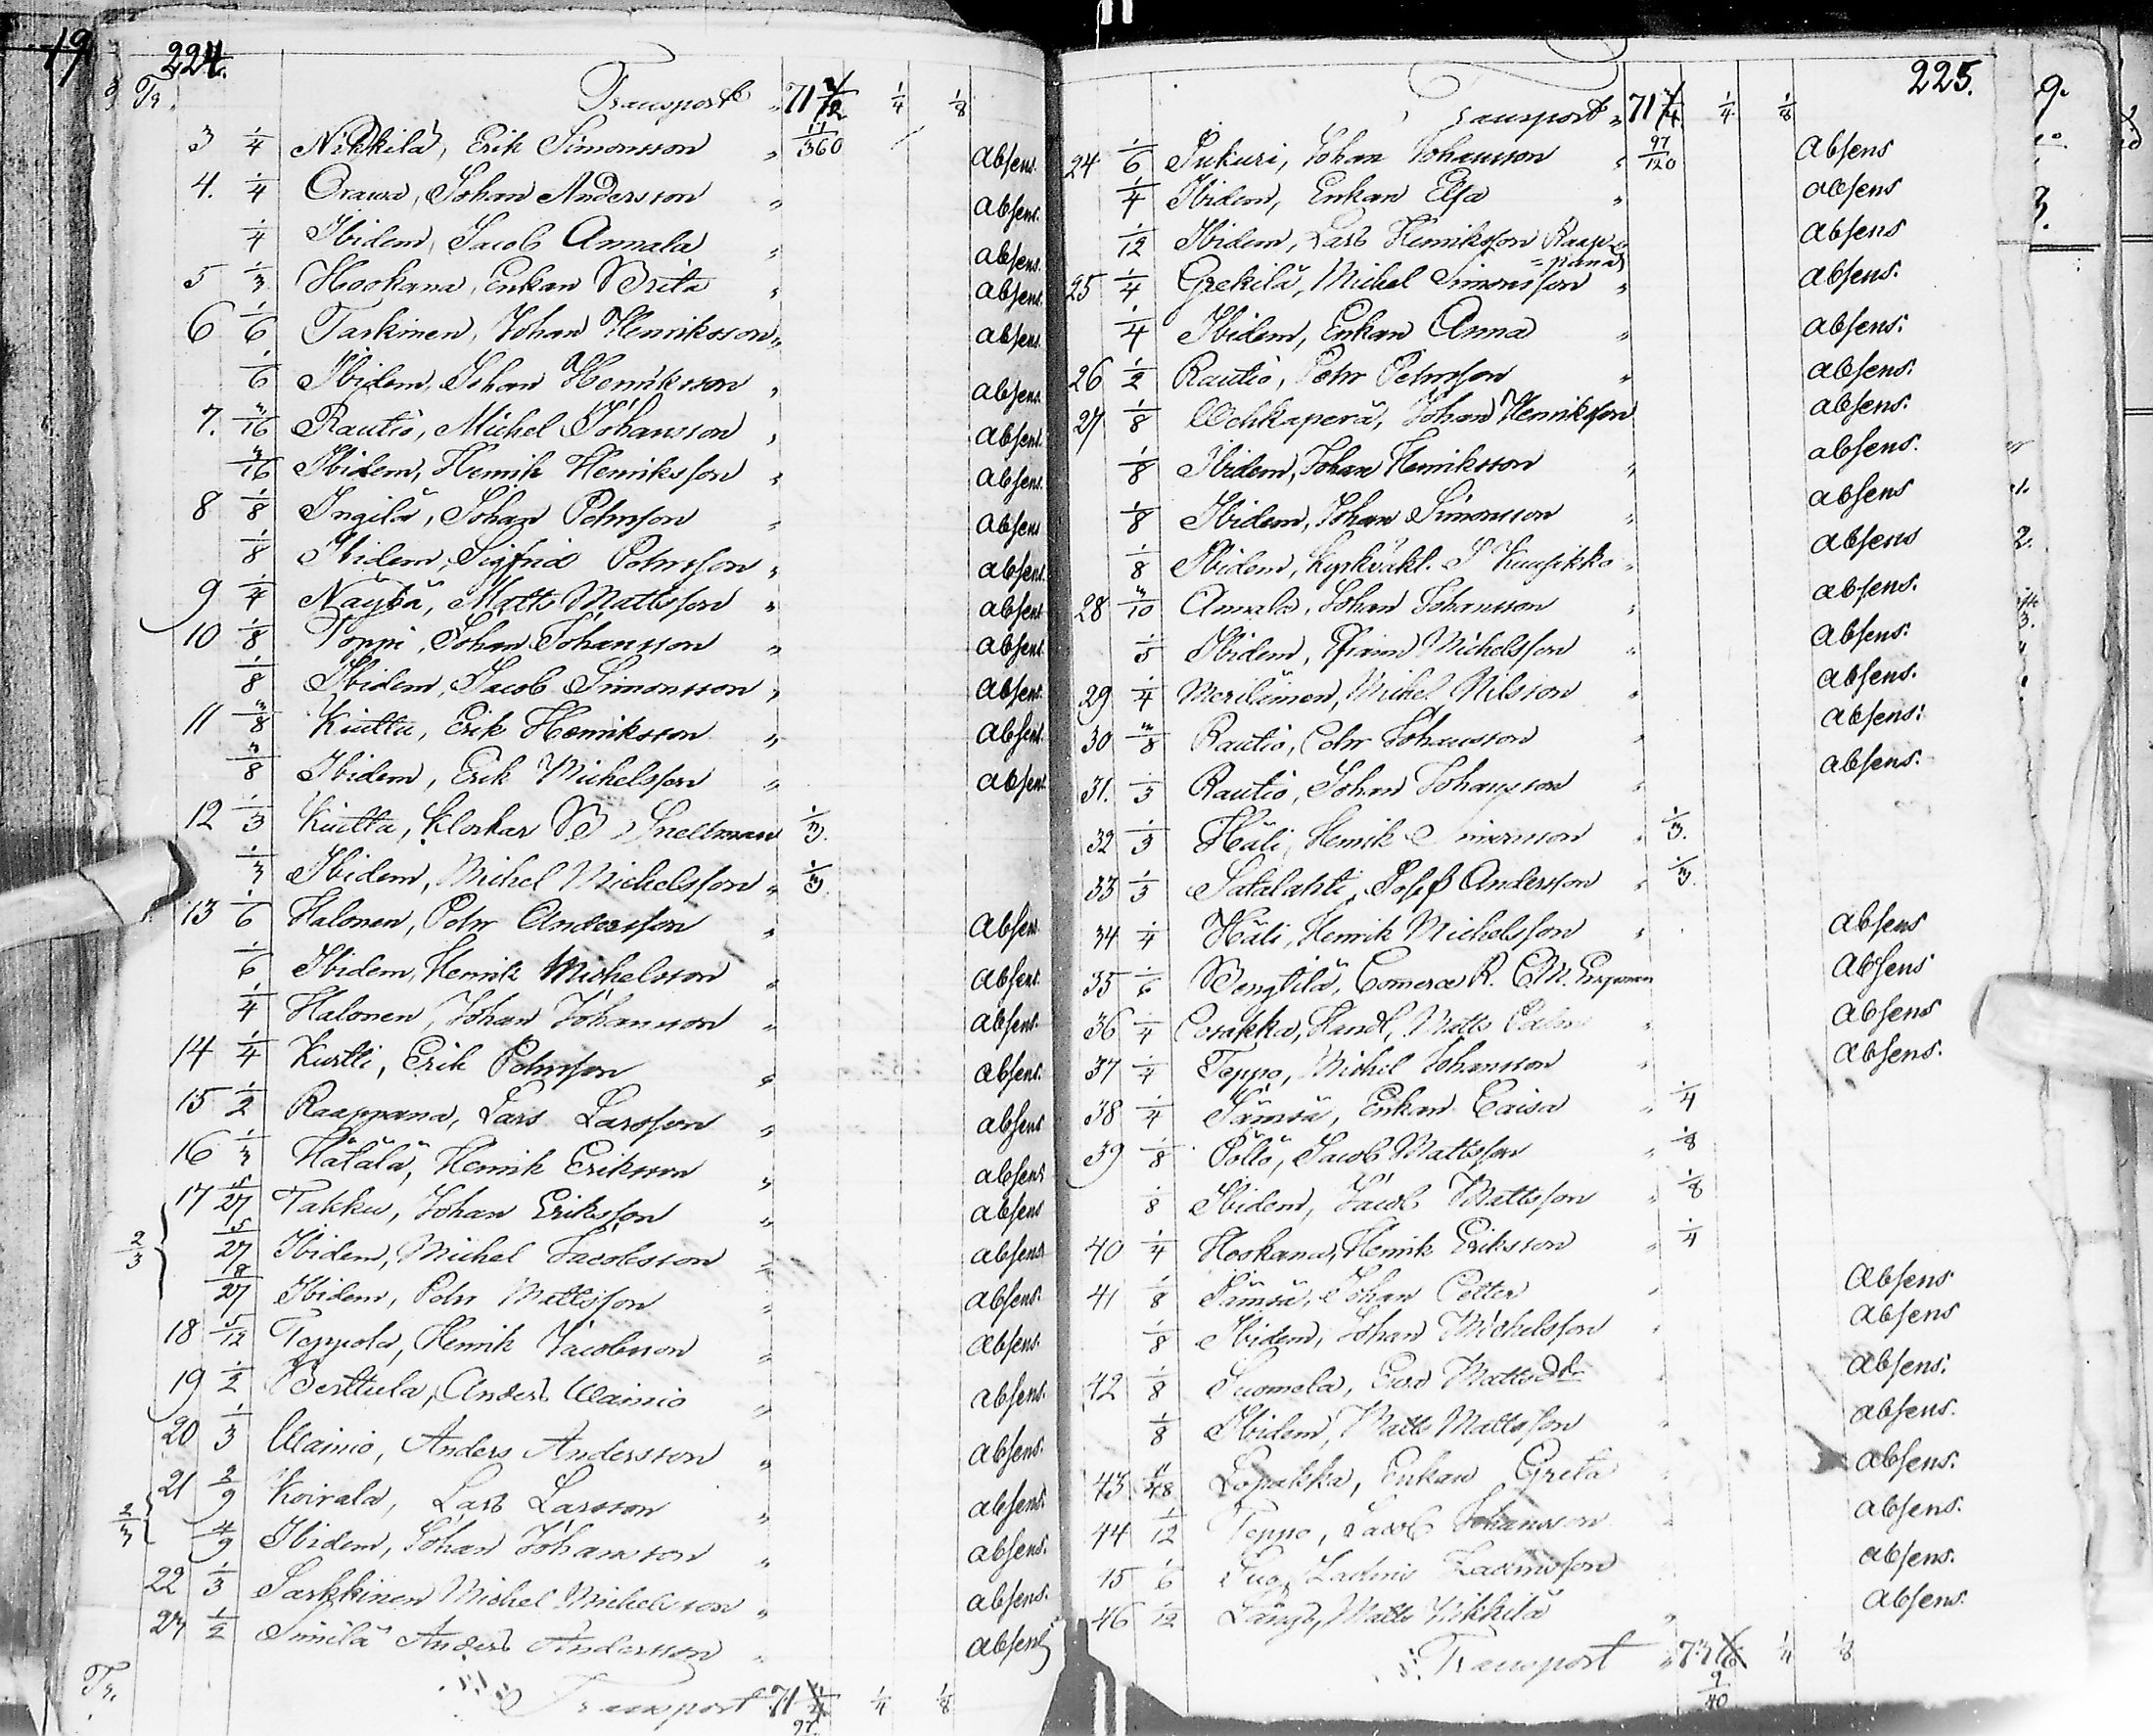 19
224.
Tr. Transport " 71 1/12 1/4 1/8
11/360
3 1/4 Nikkilä, Erik Simonsson " Absens.
4. 1/4 Orawa, Johan Andersson " Absens.
1/4 Ibidem, Jacob Annala " Absens.
5 1/3 Hookana, Enkan Brita " Absens.
6 1/6 Tarkinen, Johan Henriksson " Absens.
1/6 Ibidem, Johan Henriksson " Absens.
7. 3/16 Rautio, Michel Johansson " Absens.
3/16 Ibidem, Henrik Henriksson " Absens.
8 1/8 Ingilä, Johan Pehrsson " Absens
1/8 Ibidem, Sigfrid Pehrsson " Absens.
9 1/4 Näyhä, Matts Mattsson " Absens
10 1/8 Poppi, Johan Johansson " Absens
1/8 Ibidem, Jacob Simonsson " Absens.
11 3/8 Kiuttu, Erik Henriksson " Absens.
3/8 Ibidem, Erik Michelsson " Absens.
12 1/3 Kiuttu, Klockar B. Snellman 1/3.
1/3 Ibidem, Michel Michelsson " 1/3.
13 1/6 Halonen, Pehr Andersson " Absens
1/6 Ibidem, Henrik Michelsson " Absens.
1/4 Halonen, Johan Johansson " Absens.
14 1/4 Kurtti, Erik Pehrsson " Absens.
15 1/2 Raappana, Lars Larsson " Absens
16 1/3 Hätälä, Henrik Eriksson " Absens
17 5/27 Takku, Johan Eriksson " Absens
2/3 5/27 Ibidem, Michel Jacobsson " Absens
8/27 Ibidem, Pehr Mattsson " Absens.
18 5/12 Teppola, Henrik Jacobsson " Absens.
19 1/2 Perttula, Anders Wainio " Absens.
20 1/3 Wainio, Anders Andersson " Absens.
21 2/9 Koirala, Lars Larsson " Absens.
2/3 4/9 Ibidem, Johan Johansson " Absens.
22 1/3 Sarkkinen Michel Michelsson " Absens.
23 1/2 Similä Anders Andersson " Absens
Tr. Transport 71 1/4 1/8
97
225.
Transport " 71 1/4 1/8
97/120
24 1/6 Pukuri, Johan Johansson " Absens
1/4 Ibidem, Enkan Elsa " Absens
1/12 Ibidem, Lars Henriksson Raap= Absens
=pana
25 1/4 Grekilä, Michel Simonsson " Absens.
1/4 Ibidem, Enkan Anna " Absens.
26 1/2 Rautio, Pehr Pehrsson " Absens.
27 1/8 Wehkaperä, Johan Henriksson Absens.
1/8 Ibidem, Johan Henriksson " Absens.
1/8 Ibidem, Johan Simonsson " Absens
1/8 Ibidem, Kyrkväkt. J Kuusikko " Absens
28 3/10 Annala, Johan Johansson " Absens.
1/5 Ibidem, Efraim Michelsson " Absens.
29 1/4 Meriläinen, Michel Nilsson " Absens.
30 3/8 Rautio, Pehr Johansson " Absens.
31. 1/3 Rautio, Johan Johansson " Absens.
32 1/3 Häli, Henrik Simonsson " 1/3.
33 1/3 Satalahti, Josef Andersson " 1/3.
34 1/4 Häli, Henrik Michelsson " Absens
35 1/6 Bengtilä, Comerce R. Absens
36 1/4 Cosakka, Handl, Matts Absens
37 1/4 Teppo, Michel Johansson " Absens.
38 1/4 Sämsä, Enkan Caisa " 1/4
39 1/8 Pöllö, Jacob Mattsson " 1/8
1/8 Ibidem, Jacob Mattsson " 1/8
40 1/4 Hookana, Henrik Eriksson " 1/4
41 1/8 Sämsä, Johan Petter " Absens
1/8 Ibidem, Johan Michelsson " Absens
42 1/8 Suomela, Eva Matts Dr. Absens.
1/8 Ibidem, Matts Mattsson Absens.
43 11/48 Lopakka, Enkan Greta Absens.
44 1/12 Teppo, Jacob Johansson Absens.
45 1/6 Absens.
46 1/12 Matts Nikkilä Absens.
Transport " 73 1/4 1/8
9/40